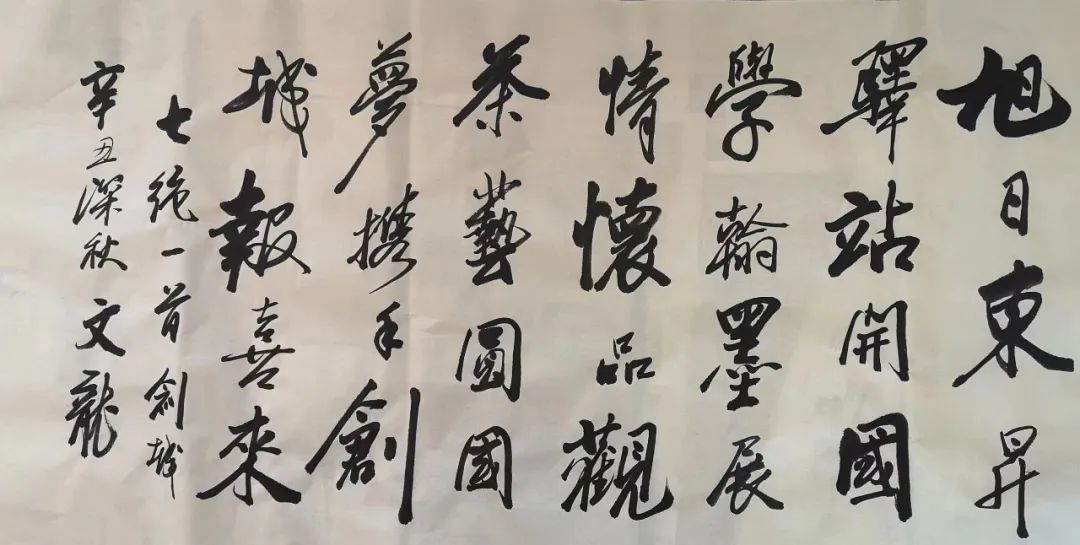 旭日東昇
驛站開國
學翰墨展
情懷品觀
茶藝圓國
夢攜手創
城報喜來
七絕一首創城
辛丑深秋文龍